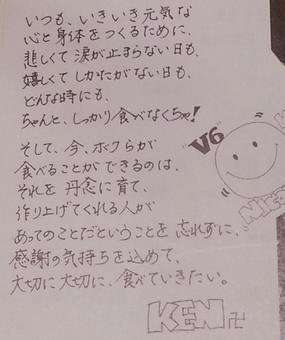 いつも、いきいき元気な
心と身体をつくるために、
悲しくて涙が止まらない日も、
嬉しくてしかたがない日も、
どんな時にも、
ちゃんと、しっかり食べなくちゃ!
そして、今、ボクらが
食べることができるのは、
それを丹念に育て、
作り上げてくれる人が
あってのことだということを忘れずに、
感謝の気持ちを込めて、
大切に大切に、食べていきたい。
V6
KEN卍